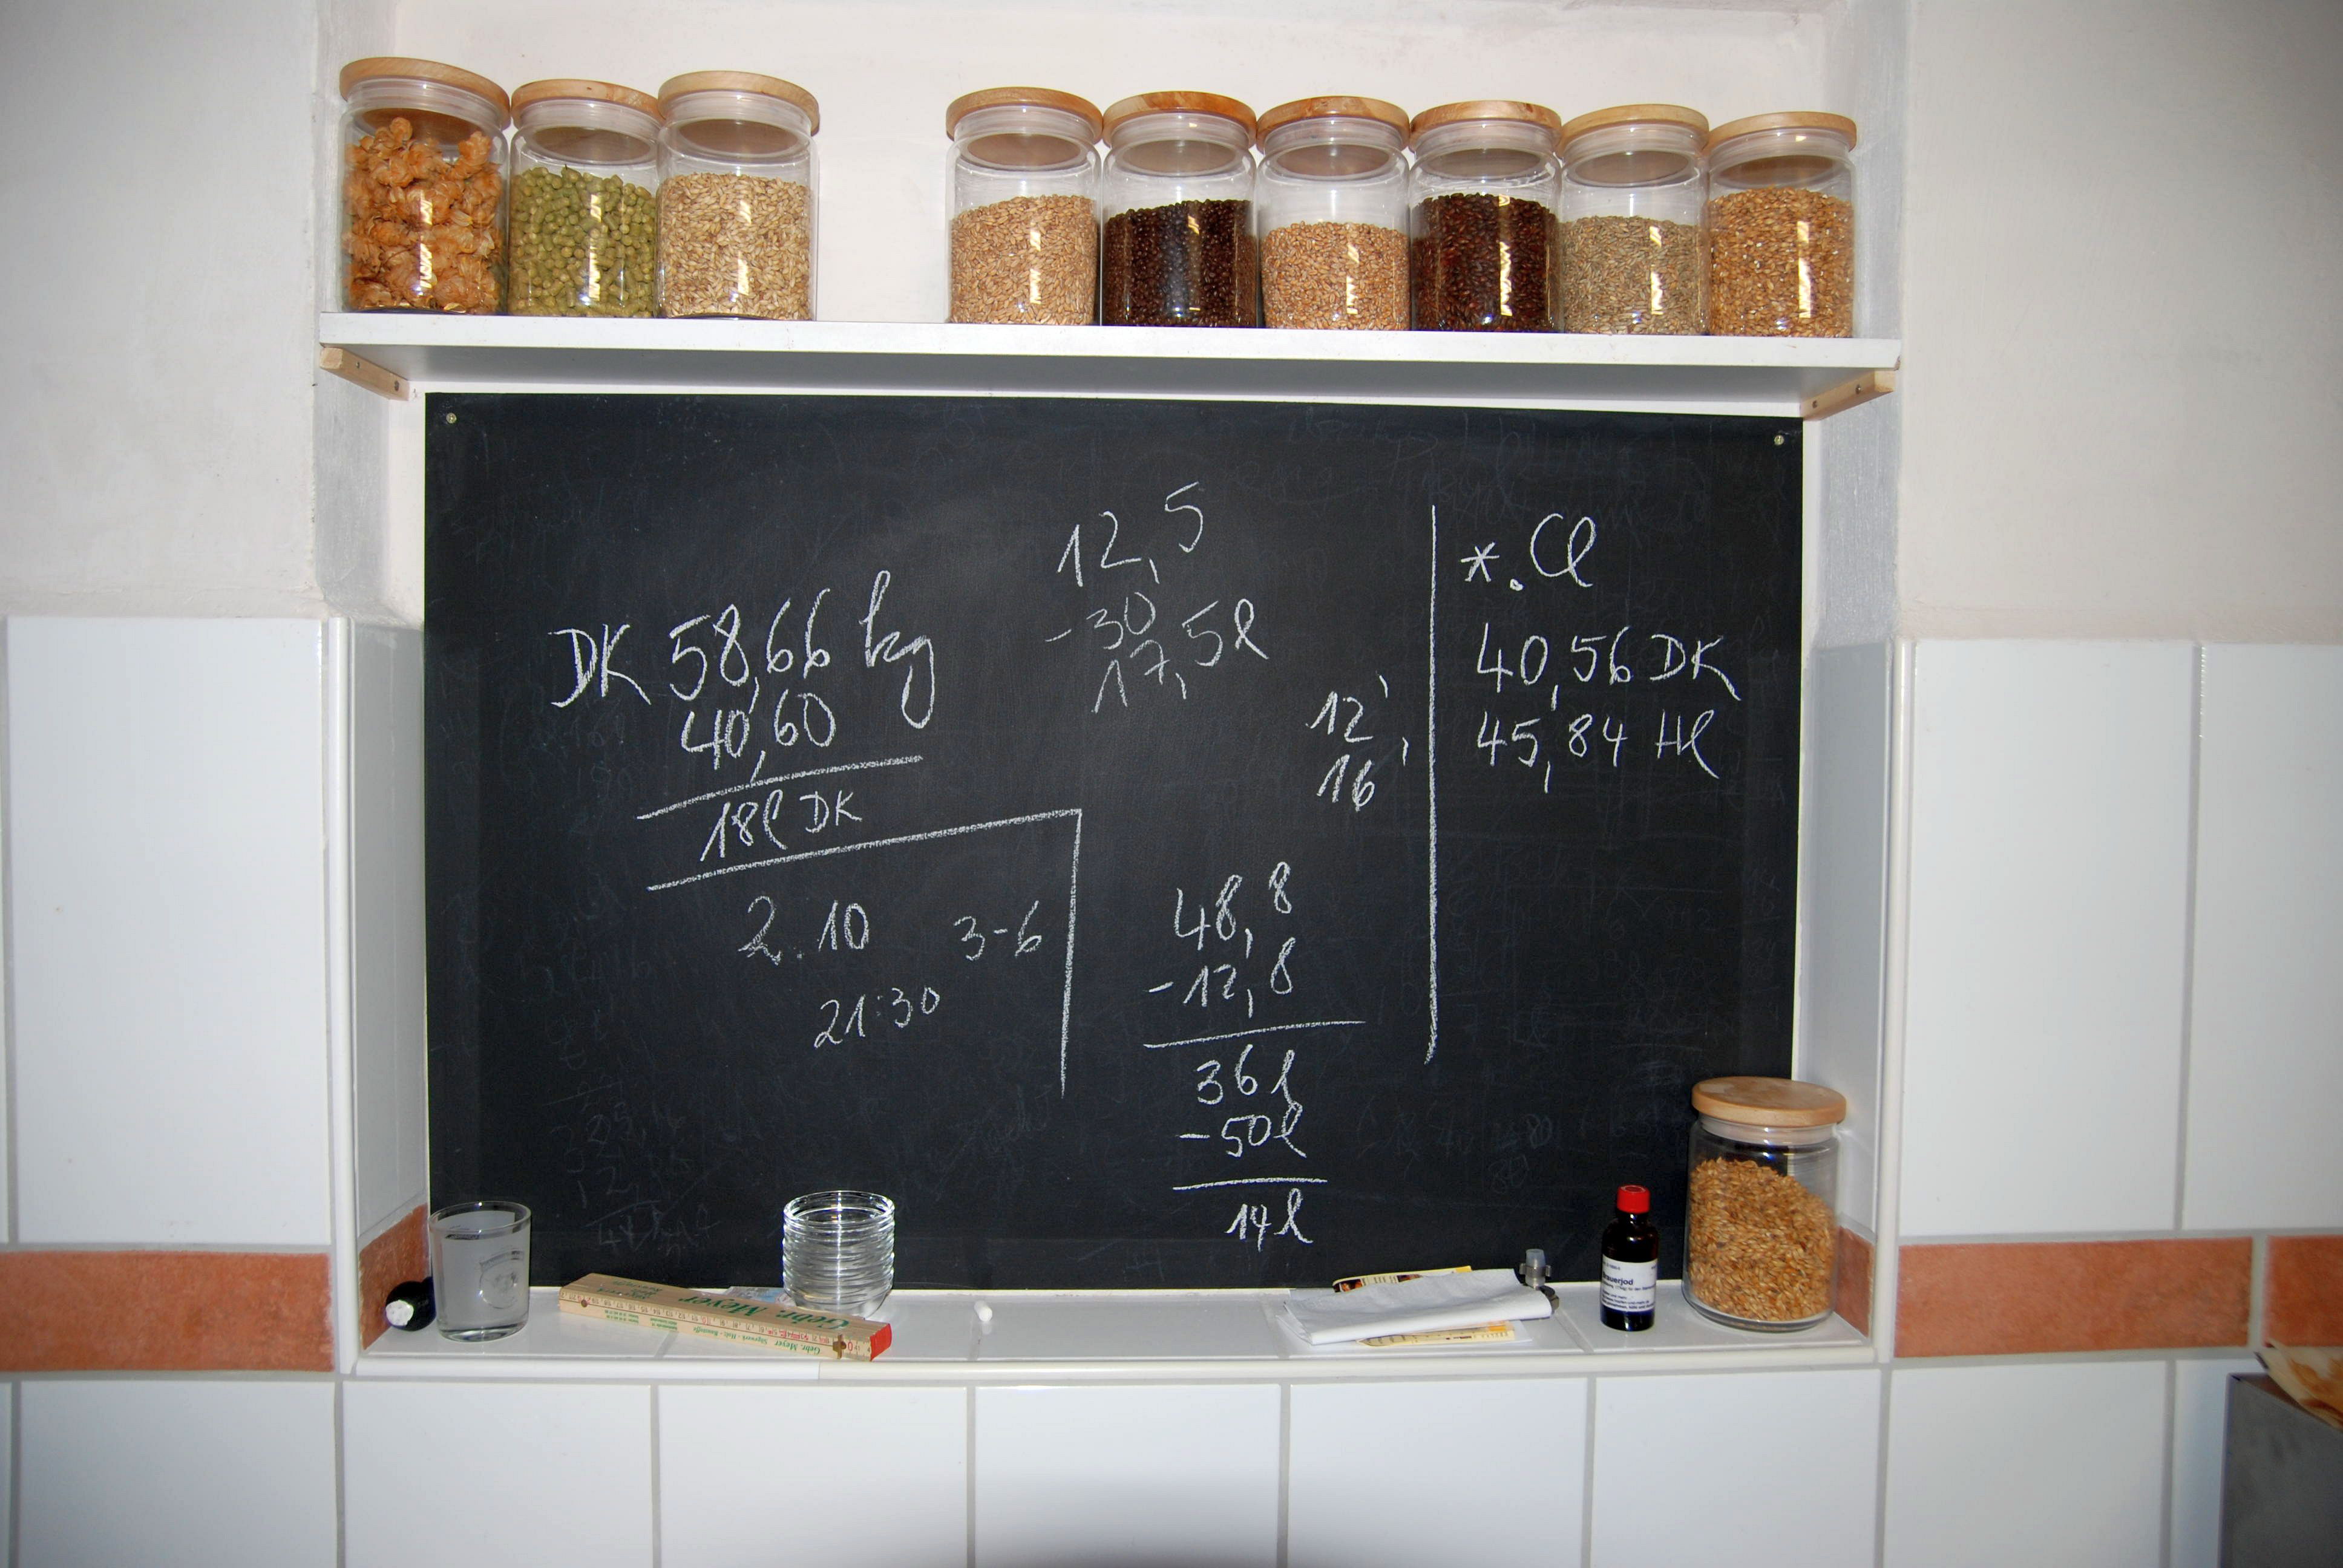 DK 58,66 kg
40,60
18l DK
2.10 3-6
21:30
12,5
-30
17,5l
12'
16'
48,8
-12,8
36l
-50l
14l
*.Cl
40,56 DK
45,84 Hl
Gebr. Meyer
Gebr. Meyer Sägewerk - Holz -